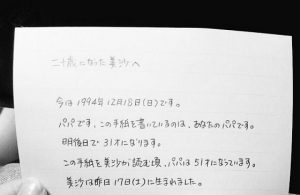 二十歳になった美沙へ
今は1994年12月18日(日)です。
パパです、この手紙を書いているのは、あなたのパパです。
明後日で31才になります。
この手紙を美沙が読む頃、パパは51才になっています。
美沙は昨日17日(土)に生まれました。